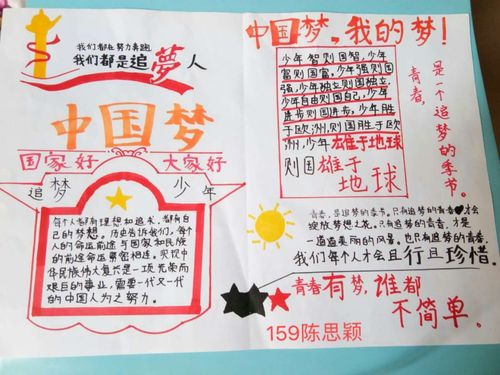 我们都在努力奔跑
我们都是追夢人
中国梦
国家好 大家好
追梦 少年
每个人都有理想和追求,都有自
己的梦想。历史告诉我们,每个
人的命运前途与国家和民族
的前途命运紧密相连。实现中
华民族伟大复兴是一项光荣而
艰巨的事业,需要一代又一代
的中国人为之努力。
中国梦,我的梦!
少年智则国智,少年
富则国富,少年强则国
强,少年独立则国独立,
少年自由则国自己,少年
进步则国进步,少年胜
于欧洲,则国胜于欧
洲,少年雄于地球
则国雄于
地球
青春,
是一个追梦的季节。
青春,是追梦的季节。只有追梦的青春才会
绽放梦想之花。只有追梦的青春,才是
一道道美丽的风景。也只有追梦的青春
我们每个人才会且行且珍惜。
青春有梦,谁都
不简单。
159陈思颖